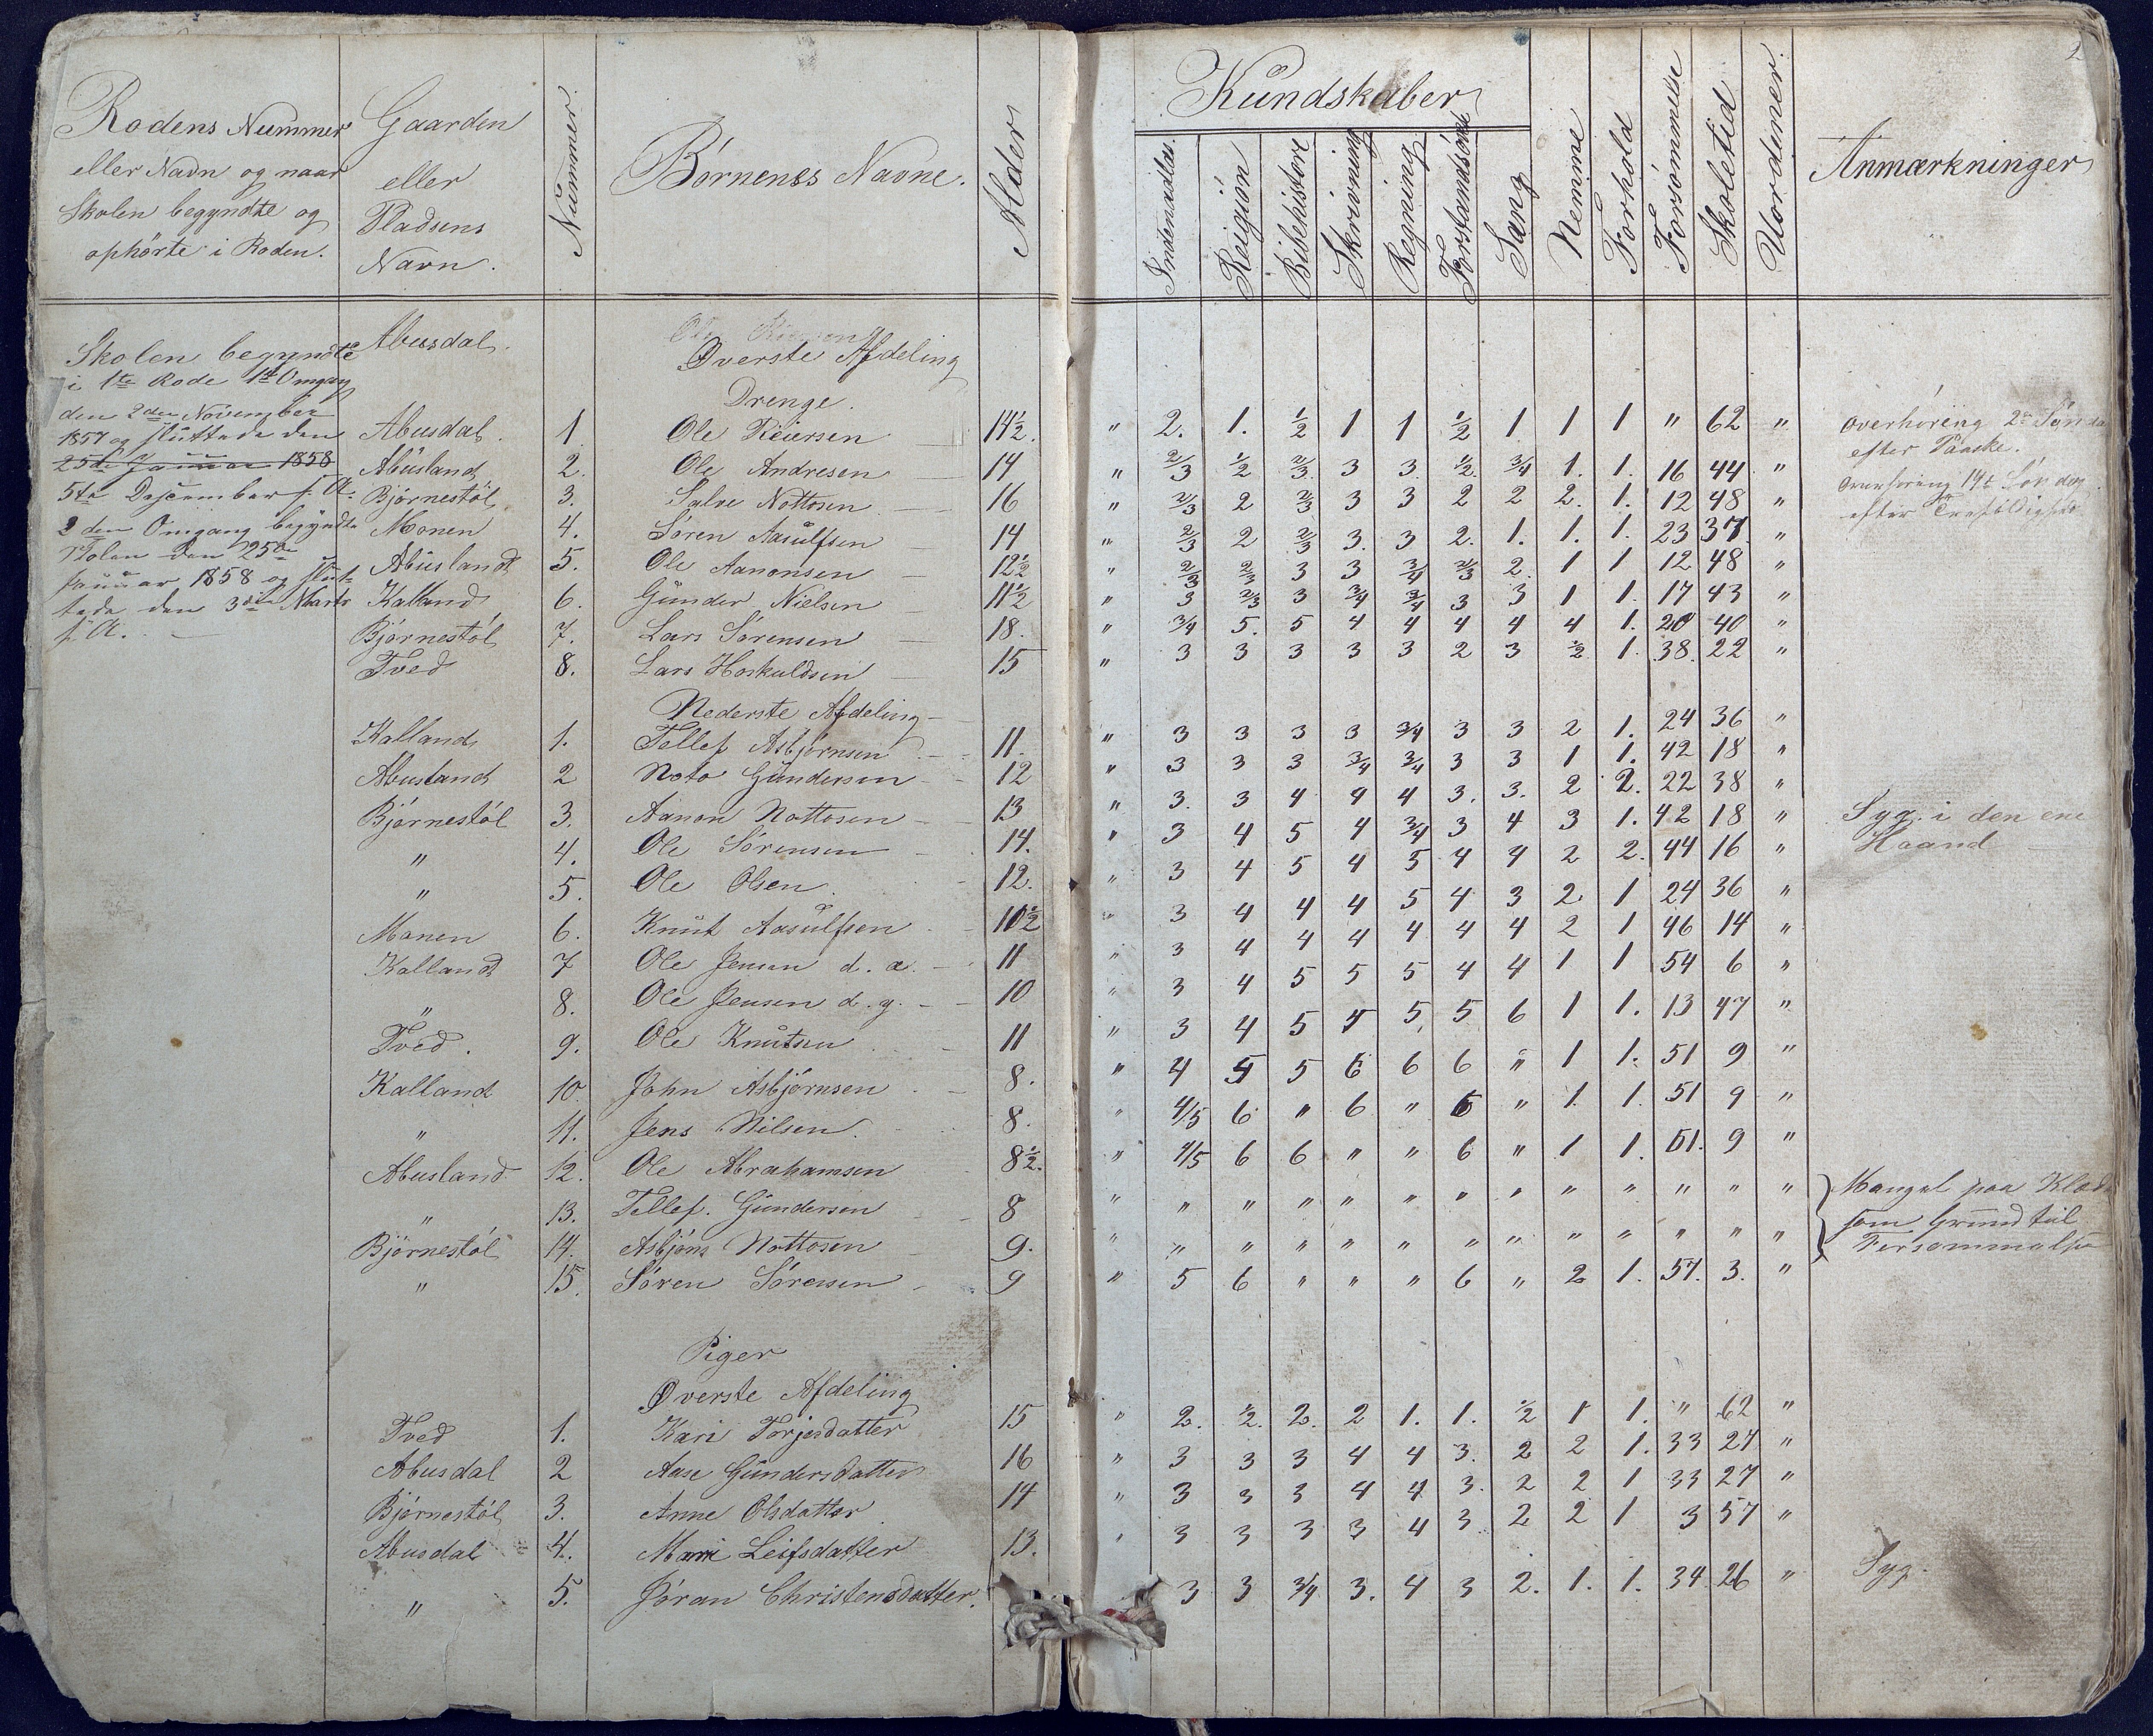 2
Rodens Nummer
eller Navn og naar
Skolen begyndte og
ophørte i Roden.
Gaarden
eller
Pladsens
Navn.
Nummer.
Børnenes Navne.
Alder
Kundskaber
Indenadlæs.
Religion
Bibelhistore
Skrivning
Regning
Forstandsøvels
Sang
Nemme
Forhold
Forsømmelse
Skoletid
Uordener.
Anmærkninger
Skolen begyndte
i 1te Rode 1te Omgang
den 2den November
1857 og sluttede den
25de Januar 1858
5te December s. A.
2den Omgang begyndte
Skolen den 25de
Januar 1858 og slut-
tede den 3die Marts
s. A.
Abusdal.
Øverste Afdeling
Drenge.
Abusdal 1 Ole Reiersen 14½. " 2. 1. ½ 1 1 ½ 1 1 1 " 62 "
Abusland 2. Ole Andresen 14 " 2/3 ½ 2/3 3 3 ½ 3/4 1. 1. 16 44 "
Bjørnestøl 3. Salve Nottosen 16 " 2/3 2 2/3 3 3 2 2 2. 1. 12 48 "
Monen 4. Søren Aasulfsen 14 " 2/3 2 2/3 3. 3 2. 1. 1. 1. 23 37. "
Abuslandt 5. Ole Aanonsen 12½ " 2/3 2/3 3 3 3/4 2/3 2 1 1 12 48 "
Kalland 6. Gunder Nielsen 11½ " 3 2/3 3 3/4 3/4 3 3 1 1. 17 43 "
Bjørnestøl 7. Lars Sørensen 18. " 3/4 5. 5 4 4 4 4 4 1. 20 40 "
Tved 8. Lars Hoskuldsen 15 " 3 3 3 3 3 2 3 ½ 1. 38. 22 "
overhøring 2den Sønda
efter Paaske.
overhøring 14de Søndag
Nederste Afdeling
Kalland 1. Tellef Asbjørnsen 11. " 3 3 3 3 3/4 3 3 2 1. 24 36 "
Abusland 2 Noto Gundersen 12 " 3 3 3 3/4 3/4 3 3 1 1. 42 18 "
Bjørnestøl 3. Aanon Nottosen 13 " 3. 3 4 4 4 3. 3. 2 2. 22 38 "
" 4. Ole Sørensen 14. " 3 4 5 4 3/4 3 4 3 1. 42 18 " Syg i den ene
" 5. Ole Olsen 12. " 3 4 5 4 5 4 4 2 2. 44 16 " Haand
Monen 6. Knut Aasulfsen 10½ " 3 4 4 4 5 4 3 2 1 24 36 "
Kalland 7 Ole Jensen d. æ. 11 " 3 4 4 4 4 4 4 2 1 46 14 "
" 8. Ole Jensen d. y. 10 " 3 4 5 5 5 4 4 1 1 54 6 "
Tved. 9. Ole Knutsen 11 " 3 4 5 5 5 5 6 1 1. 13 47 "
Kalland 10. John Asbjørnsen 8. " 4 5 5 6 6 6 " 1 1. 51 9 "
" 11. Jens Nilsen. 8. " 4/5 6 " 6 " 6 " 1. 1. 51 9 "
Abusland 12. Ole Abrahamsen 8½. " 4/5 6 6 " " 6 " 1 1. 51. 9 "
" 13. Tellef. Gundersen 8 " " " " " " " " " " " " " Mangel paa Klæd
Bjørnestøl 14. Asbjørn Nottosen 9. " " " " " " " " " " " " " som Grund til
" 15. Søren Sørensen 9 " 5 6 " " " 6 " 2 1. 57. 3. " Forsømmelse
Piger
Øverste Afdeling
Tved 1. Kari Torjesdatter 15 " 2. ½. 2. 2 1. 1. ½ 1 1. " 62 "
Abusdal 2 Aase Gundersdatter 16 " 3 3 3 4 4 3. 2 2 1. 33 27 "
Bjørnestøl 3. Anne Olsdatter 14 " 3 3 3 4 4 3. 2 2 1 33 27 "
Abusdal 4. Mari Leifsdatter 13. " 3 3 3 3 4 3 2 2 1 3 57 "
" 5. Jøran Christensdatter. 3 3 3/4 3. 4 3 2. 1. 1. 34 26 " Syg.